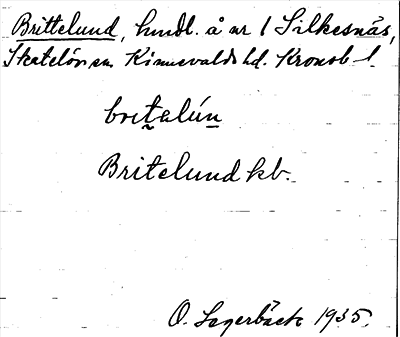 Brittelund, hmdl. å nr 1 Silkesnäs,
Skatelövs sn. Kinnevalds hd. Kronob. l.
britalún
Britelund kb.
O. Lagerbäck 1935.